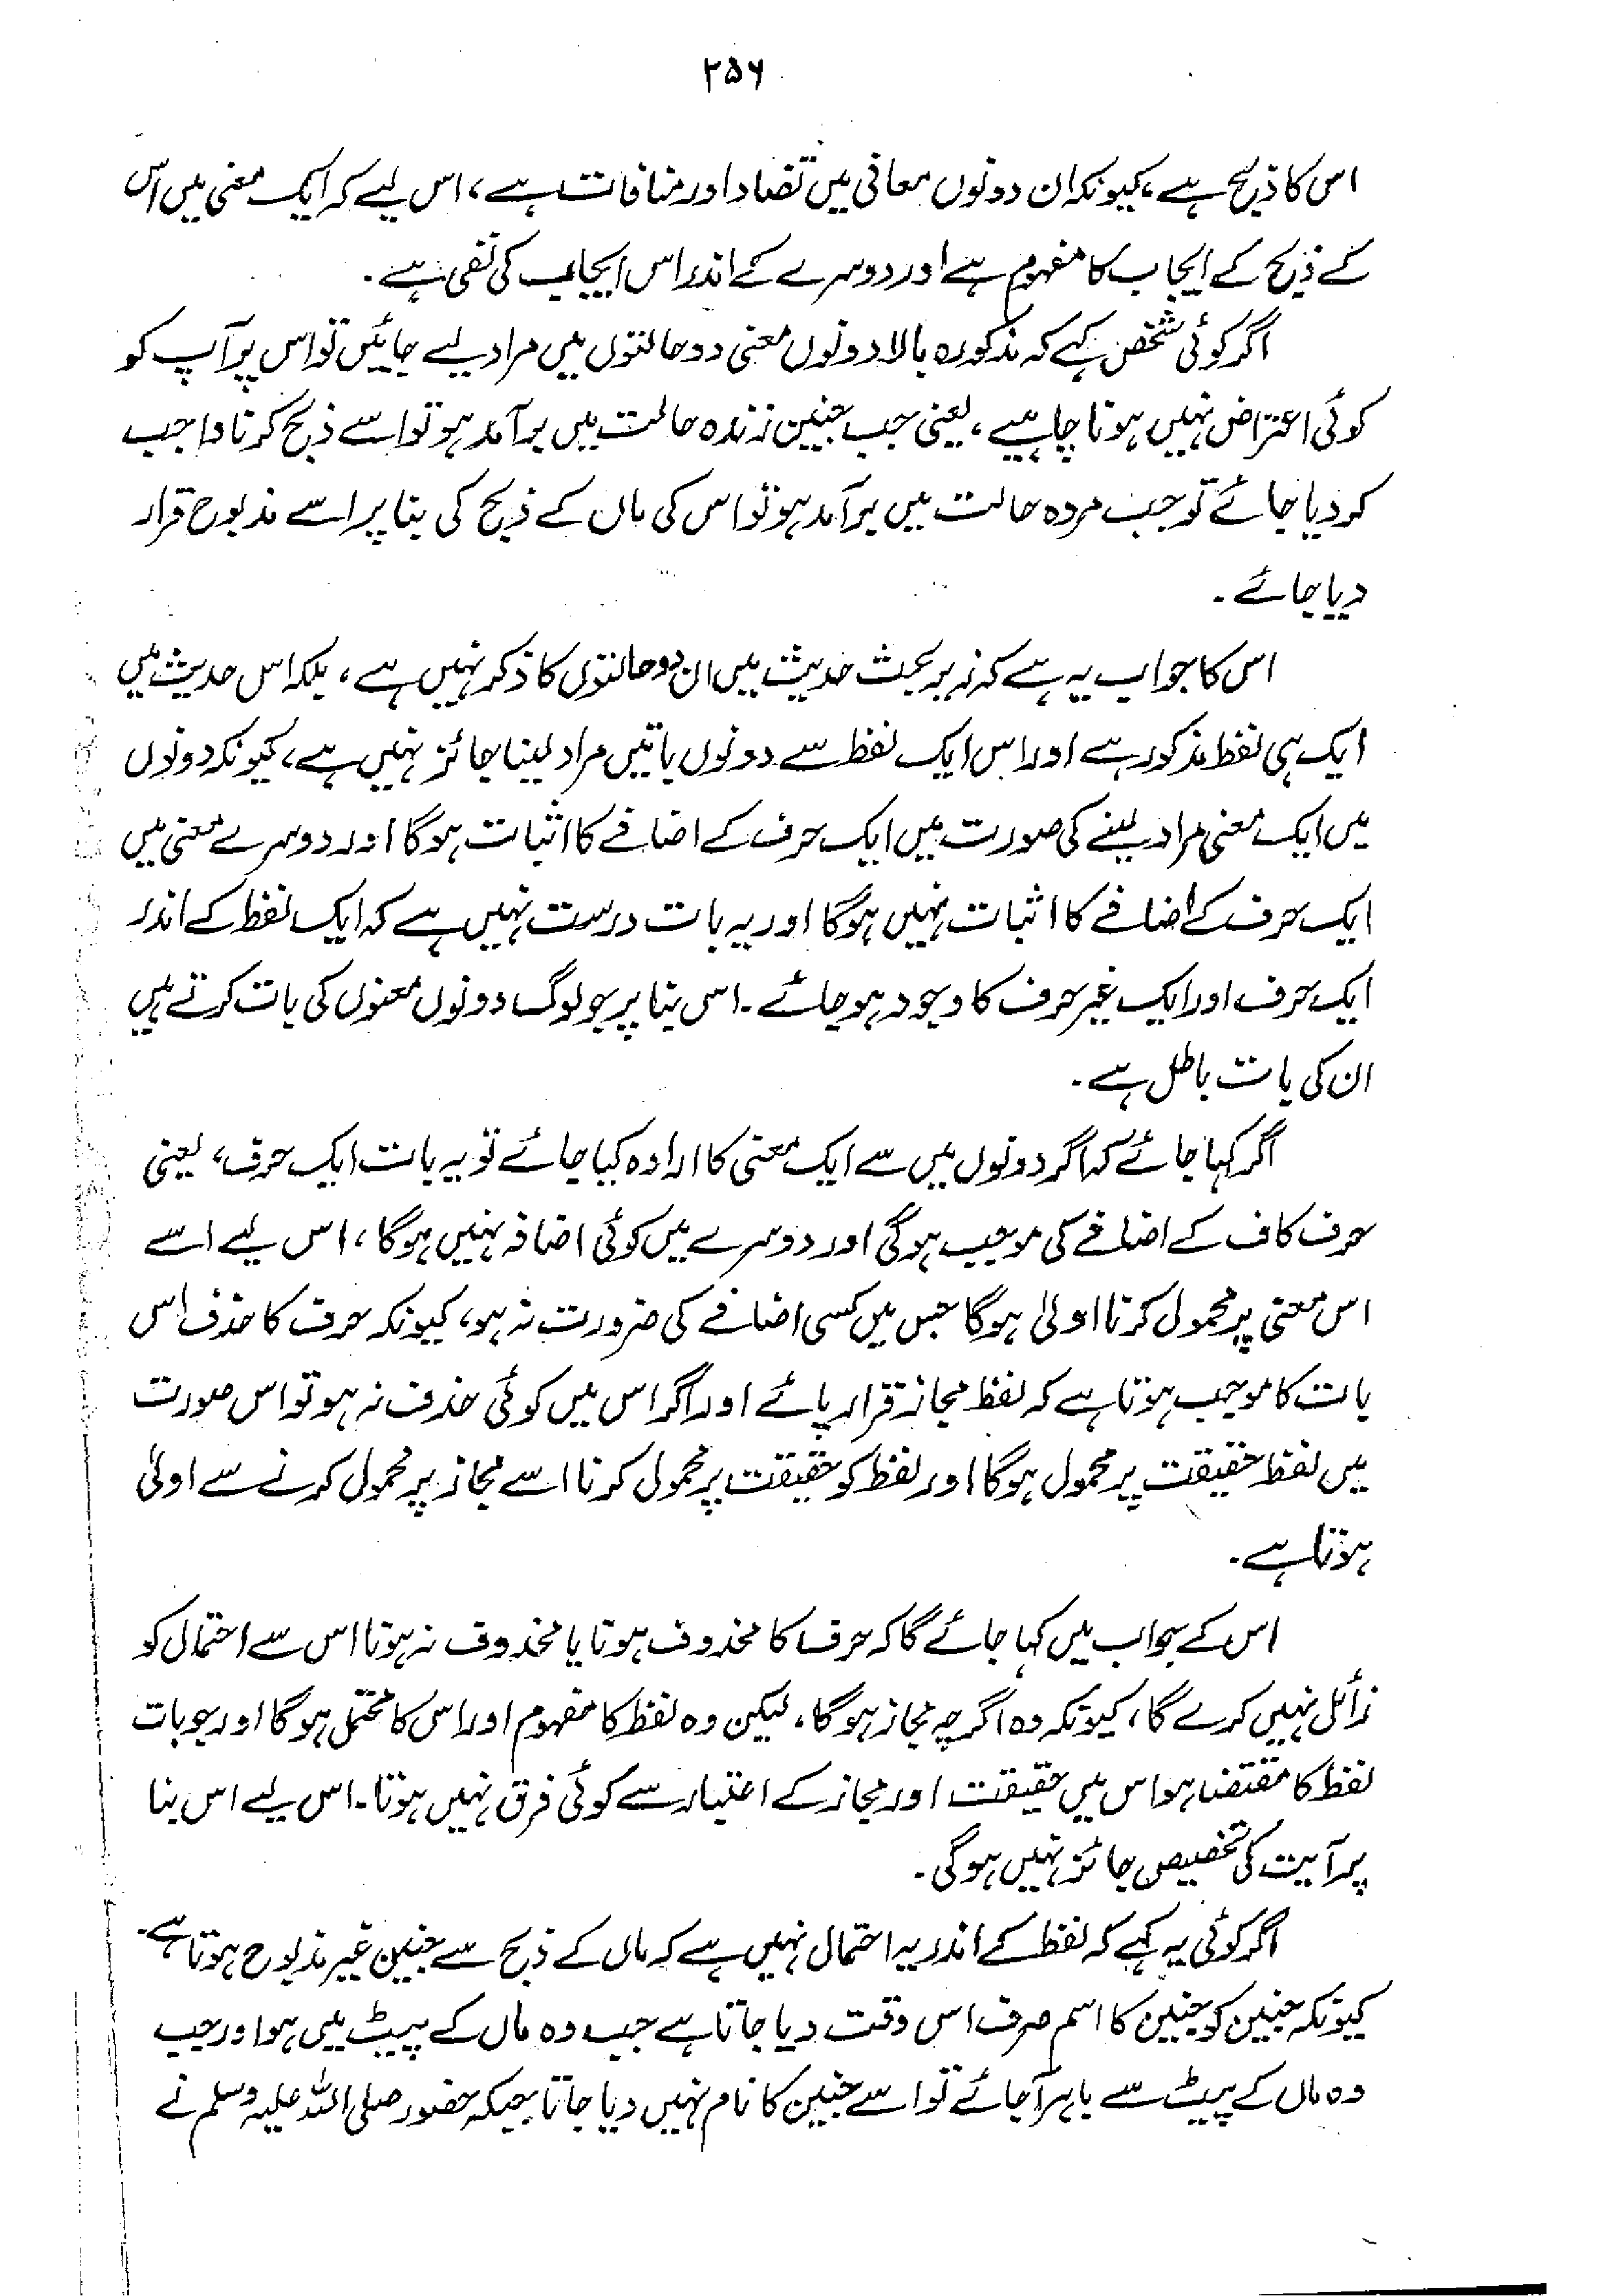 ۲۵۶
اس کا ذبح ہے، کیونکہ ان دونوں معانی میں تضاد اور منافات ہے، اس لیے کہ ایک معنی میں اس
کے ذبح کے ایجاب کا مفہوم ہے اور دوسرے کے اندر اس ایجاب کی نفی ہے۔
اگر کوئی شخص کہے کہ مذکورہ بالا دونوں معنی دو حالتوں میں مراد لیے جائیں تو اس پر آپ کو
کوئی اعتراض نہیں ہونا چاہیے، یعنی جب جنین زندہ حالت میں برآمد ہو تو اسے ذبح کرنا واجب
کر دیا جائے تو جب مردہ حالت میں برآمد ہو تو اس کی ماں کے ذبح کی بنا پر اسے مذبوح قرار
دیا جائے۔
اس کا جواب یہ ہے کہ زیر بحث حدیث میں ان دو حالتوں کا ذکر نہیں ہے، بلکہ اس حدیث میں
ایک ہی لفظ مذکور ہے اور اس ایک لفظ سے دونوں باتیں مراد لینا جائز نہیں ہے، کیونکہ دونوں
میں ایک معنی مراد لینے کی صورت میں ایک حرف کے اضافے کا اثبات ہوگا اور دوسرے معنی میں
ایک حرف کے اضافے کا اثبات نہیں ہوگا اور یہ بات درست نہیں ہے کہ ایک لفظ کے اندر
ایک حرف اور ایک غیر حرف کا وجود ہو جائے۔ اسی بنا پر جو لوگ دونوں معنوں کی بات کرتے ہیں
ان کی بات باطل ہے۔
اگر کہا جائے کہ اگر دونوں میں سے ایک معنی کا ارادہ کیا جائے تو یہ بات ایک حرف، یعنی
حرف کاف کے اضافے کی موجب ہوگی اور دوسرے میں کوئی اضافہ نہیں ہوگا، اس لیے اسے
اس معنی پر محمول کرنا اولیٰ ہوگا جس میں کسی اضافے کی ضرورت نہ ہو، کیونکہ حرف کا حذف اس
بات کا موجب ہوتا ہے کہ لفظ مجاز قرار پائے اور اگر اس میں کوئی حذف نہ ہو تو اس صورت
میں لفظ حقیقت پر محمول ہوگا اور لفظ کو حقیقت پر محمول کرنا اسے مجاز پر محمول کرنے سے اولیٰ
ہوتا ہے۔
اس کے جواب میں کہا جائے گا کہ حرف کا محذوف ہونا یا محذوف نہ ہونا اس سے احتمال کو
زائل نہیں کرے گا، کیونکہ وہ اگرچہ مجاز ہوگا، لیکن وہ لفظ کا مفہوم اور اس کا محتمل ہوگا اور جو بات
لفظ کا مقتضا ہو اس میں حقیقت اور مجاز کے اعتبار سے کوئی فرق نہیں ہوتا۔ اس لیے اس بنا
پر آیت کی تخصیص جائز نہیں ہوگی۔
اگر کوئی یہ کہے کہ لفظ کے اندر یہ احتمال نہیں ہے کہ ماں کے ذبح سے جنین غیر مذبوح ہوتا ہے۔
کیونکہ جنین کو جنین کا اسم صرف اس وقت دیا جاتا ہے جب وہ ماں کے پیٹ میں ہو اور جب
وہ ماں کے پیٹ سے باہر آجائے تو اسے جنین کا نام نہیں دیا جاتا جبکہ حضور صلی اللہ علیہ وسلم نے